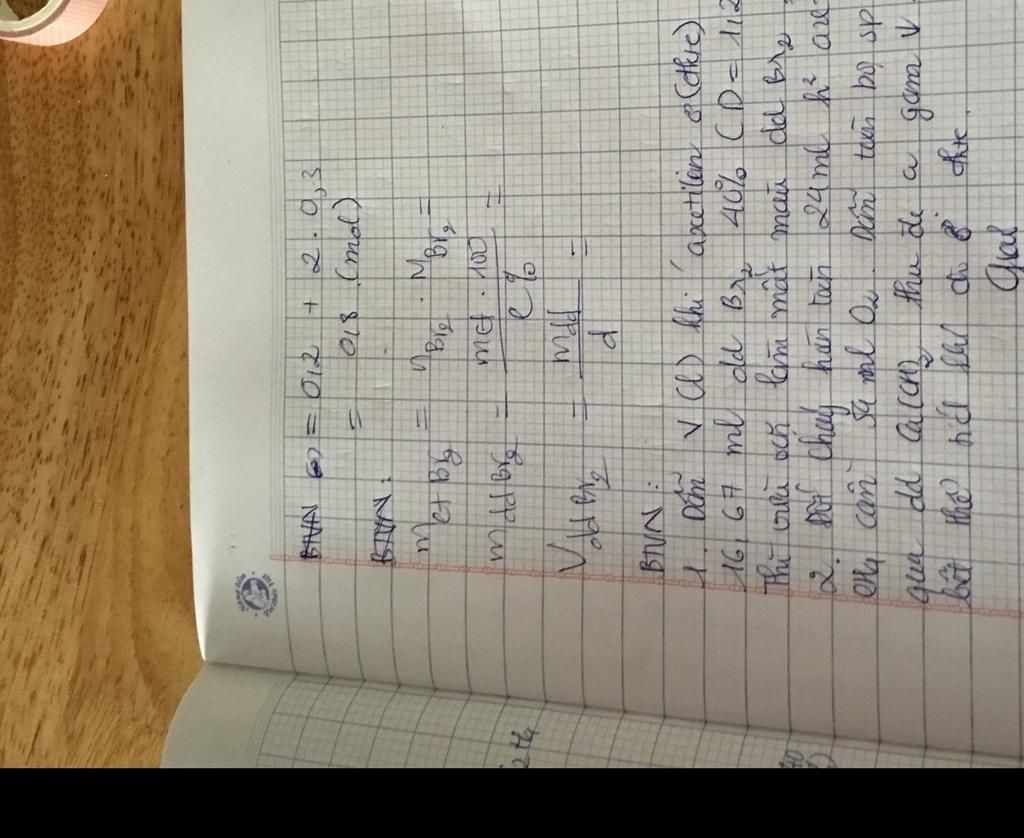 BTVN = 0,2 + 2 . 0,3
= 0,8 (mol)
BTVN:
mct Br2 = nBr2 . MBr2 =
mdd Br2 = mct . 100 / C% =
Vdd Br2 = mdd / d =
BTVN:
1. Dẫn V (l) khí axetilen ở (đktc)
16,67 ml dd Br2 40% (D = 1,2
Thì vừa làm mất màu dd Br2
2. Đốt cháy hoàn toàn 24 ml h²
CH4 cần 54 ml O2. Dẫn toàn bộ sp
qua dd Ca(OH)2 thu đc a gam
biết thể tích khí đo ở đktc.
Giải
2H4